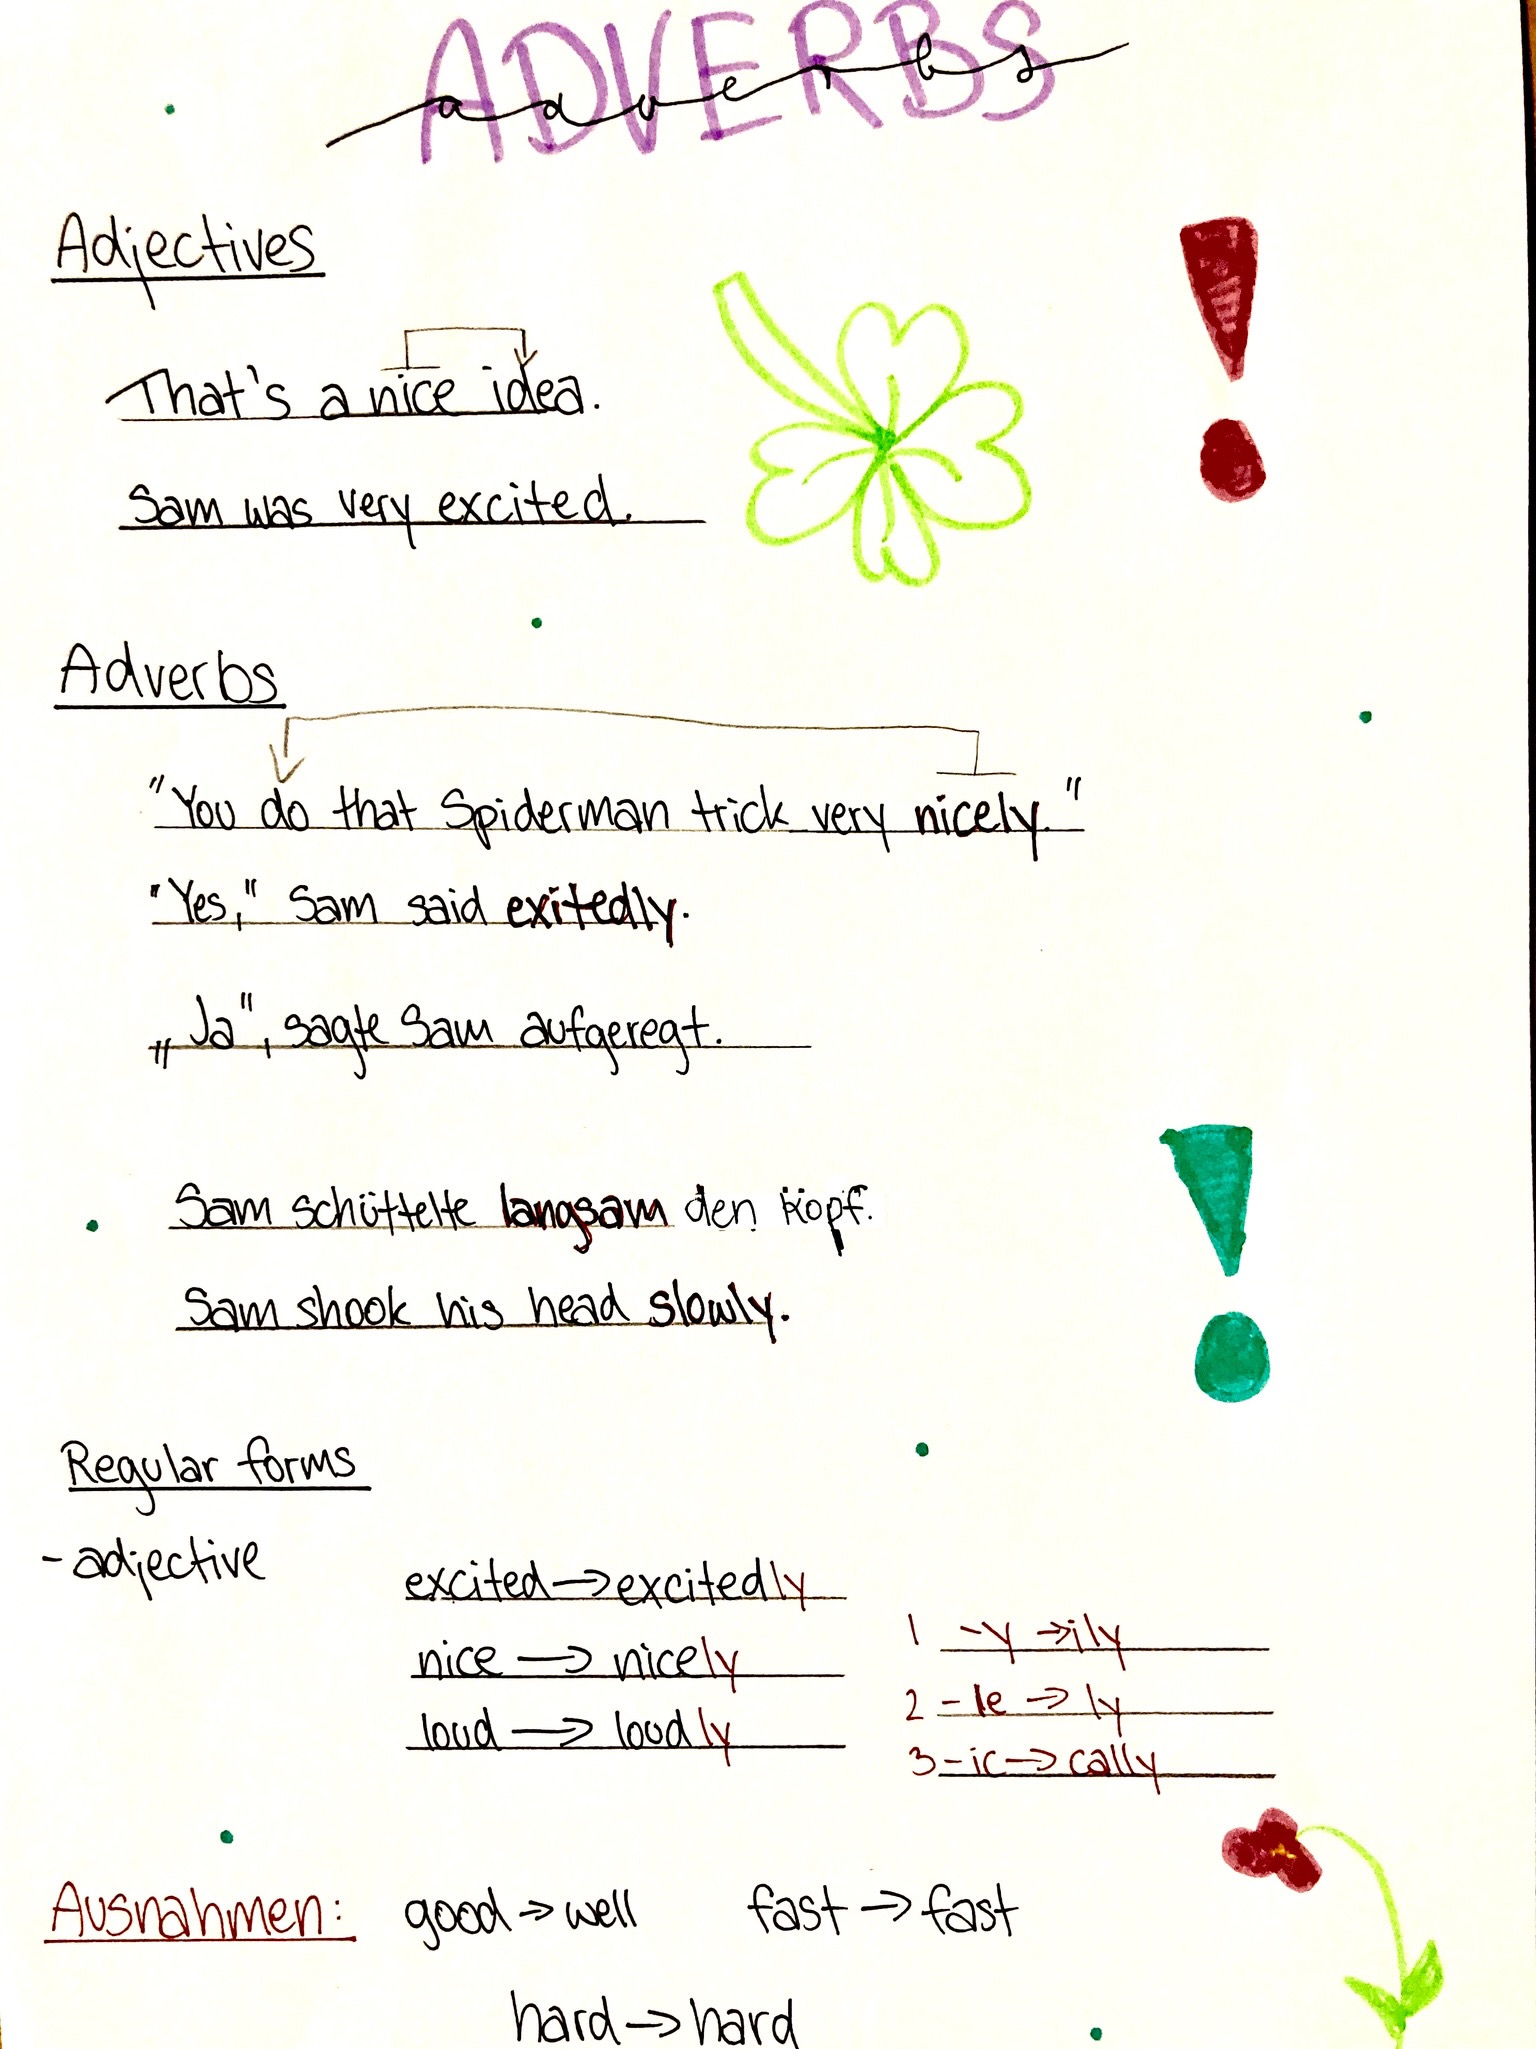 ADVERBS
adverbs
Adjectives
That's a nice idea.
Sam was very excited.
Adverbs
"You do that Spiderman trick very nicely."
"Yes," Sam said exitedly.
„Ja", sagte Sam aufgeregt.
Sam schüttelte langsam den Kopf.
Sam shook his head slowly.
Regular forms
- adjective
excited → excitedly
nice → nicely
loud → loudly
1 -y → ily
2 - le → ly
3 - ic → cally
Ausnahmen: good → well fast → fast
hard → hard